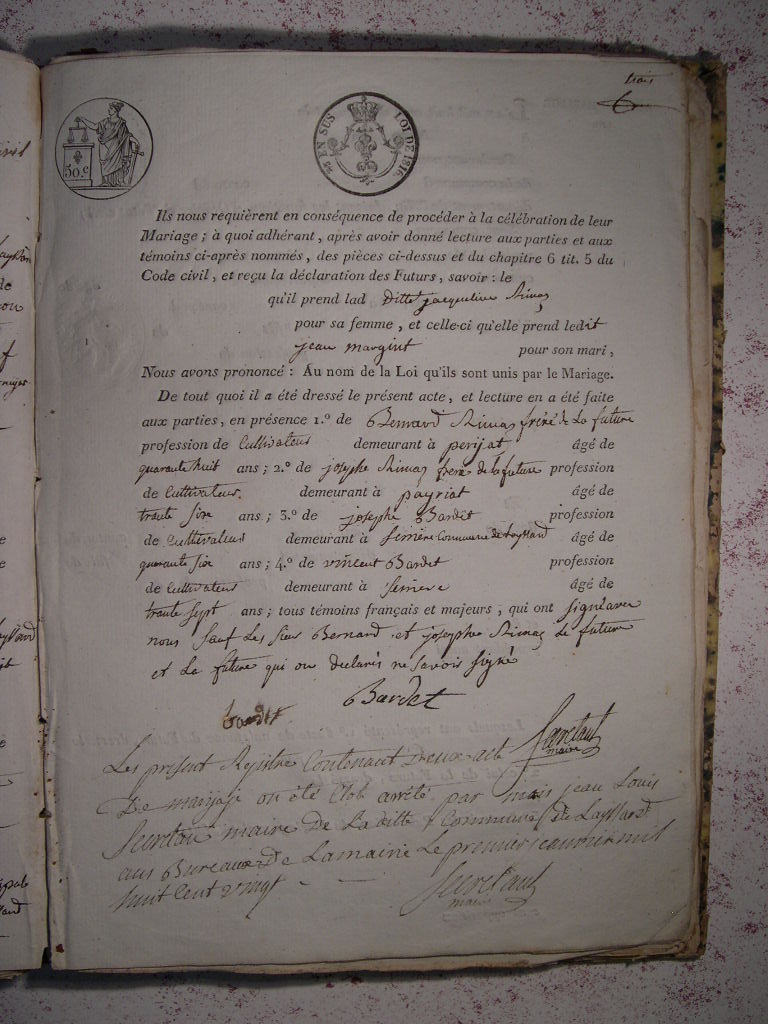 trois
30.c
EN SUS LOI DE 1816.
Ils nous requièrent en conséquence de procéder à la célébration de leur
Mariage ; à quoi adhérant, après avoir donné lecture aux parties et aux
témoins ci-après nommés, des pièces ci-dessus et du chapitre 6 tit. 5 du
Code civil, et reçu la déclaration des Futurs, savoir : le
qu'il prend lad ditte jacqueline
pour sa femme, et celle-ci qu'elle prend ledit
jean margint pour son mari,
Nous avons prononcé : Au nom de la Loi qu'ils sont unis par le Mariage.
De tout quoi il a été dressé le présent acte, et lecture en a été faite
aux parties, en présence 1.º de Bernard frère de La future
profession de Cultivateur demeurant à perijat âgé de
quarante huit ans ; 2.º de josephe frere de la future profession
de Cultivateur demeurant à payriat âgé de
trante six ans ; 3.º de josephe Bardet profession
de Cultivateur demeurant à Semève Commune de Layssard âgé de
quarante six ans ; 4.º de vincent Bardet profession
de Cultivateur demeurant à Semève âgé de
trante sept ans ; tous témoins français et majeurs, qui ont signé avec
nous Sauf Les Sieur Bernard et josephe Le future
et La future qui on declarés ne Savoir Signé
bardet Bardet
Secretant
maire
Les present Registre Contenant deux acte
De mariaje on été Clot arrété par mois jean Louis
Secretan maire De La ditte Commune de Layssard
aus Bureau de Lamairie Le premier janvier mil
huit Cent vingt
Secretant
maire